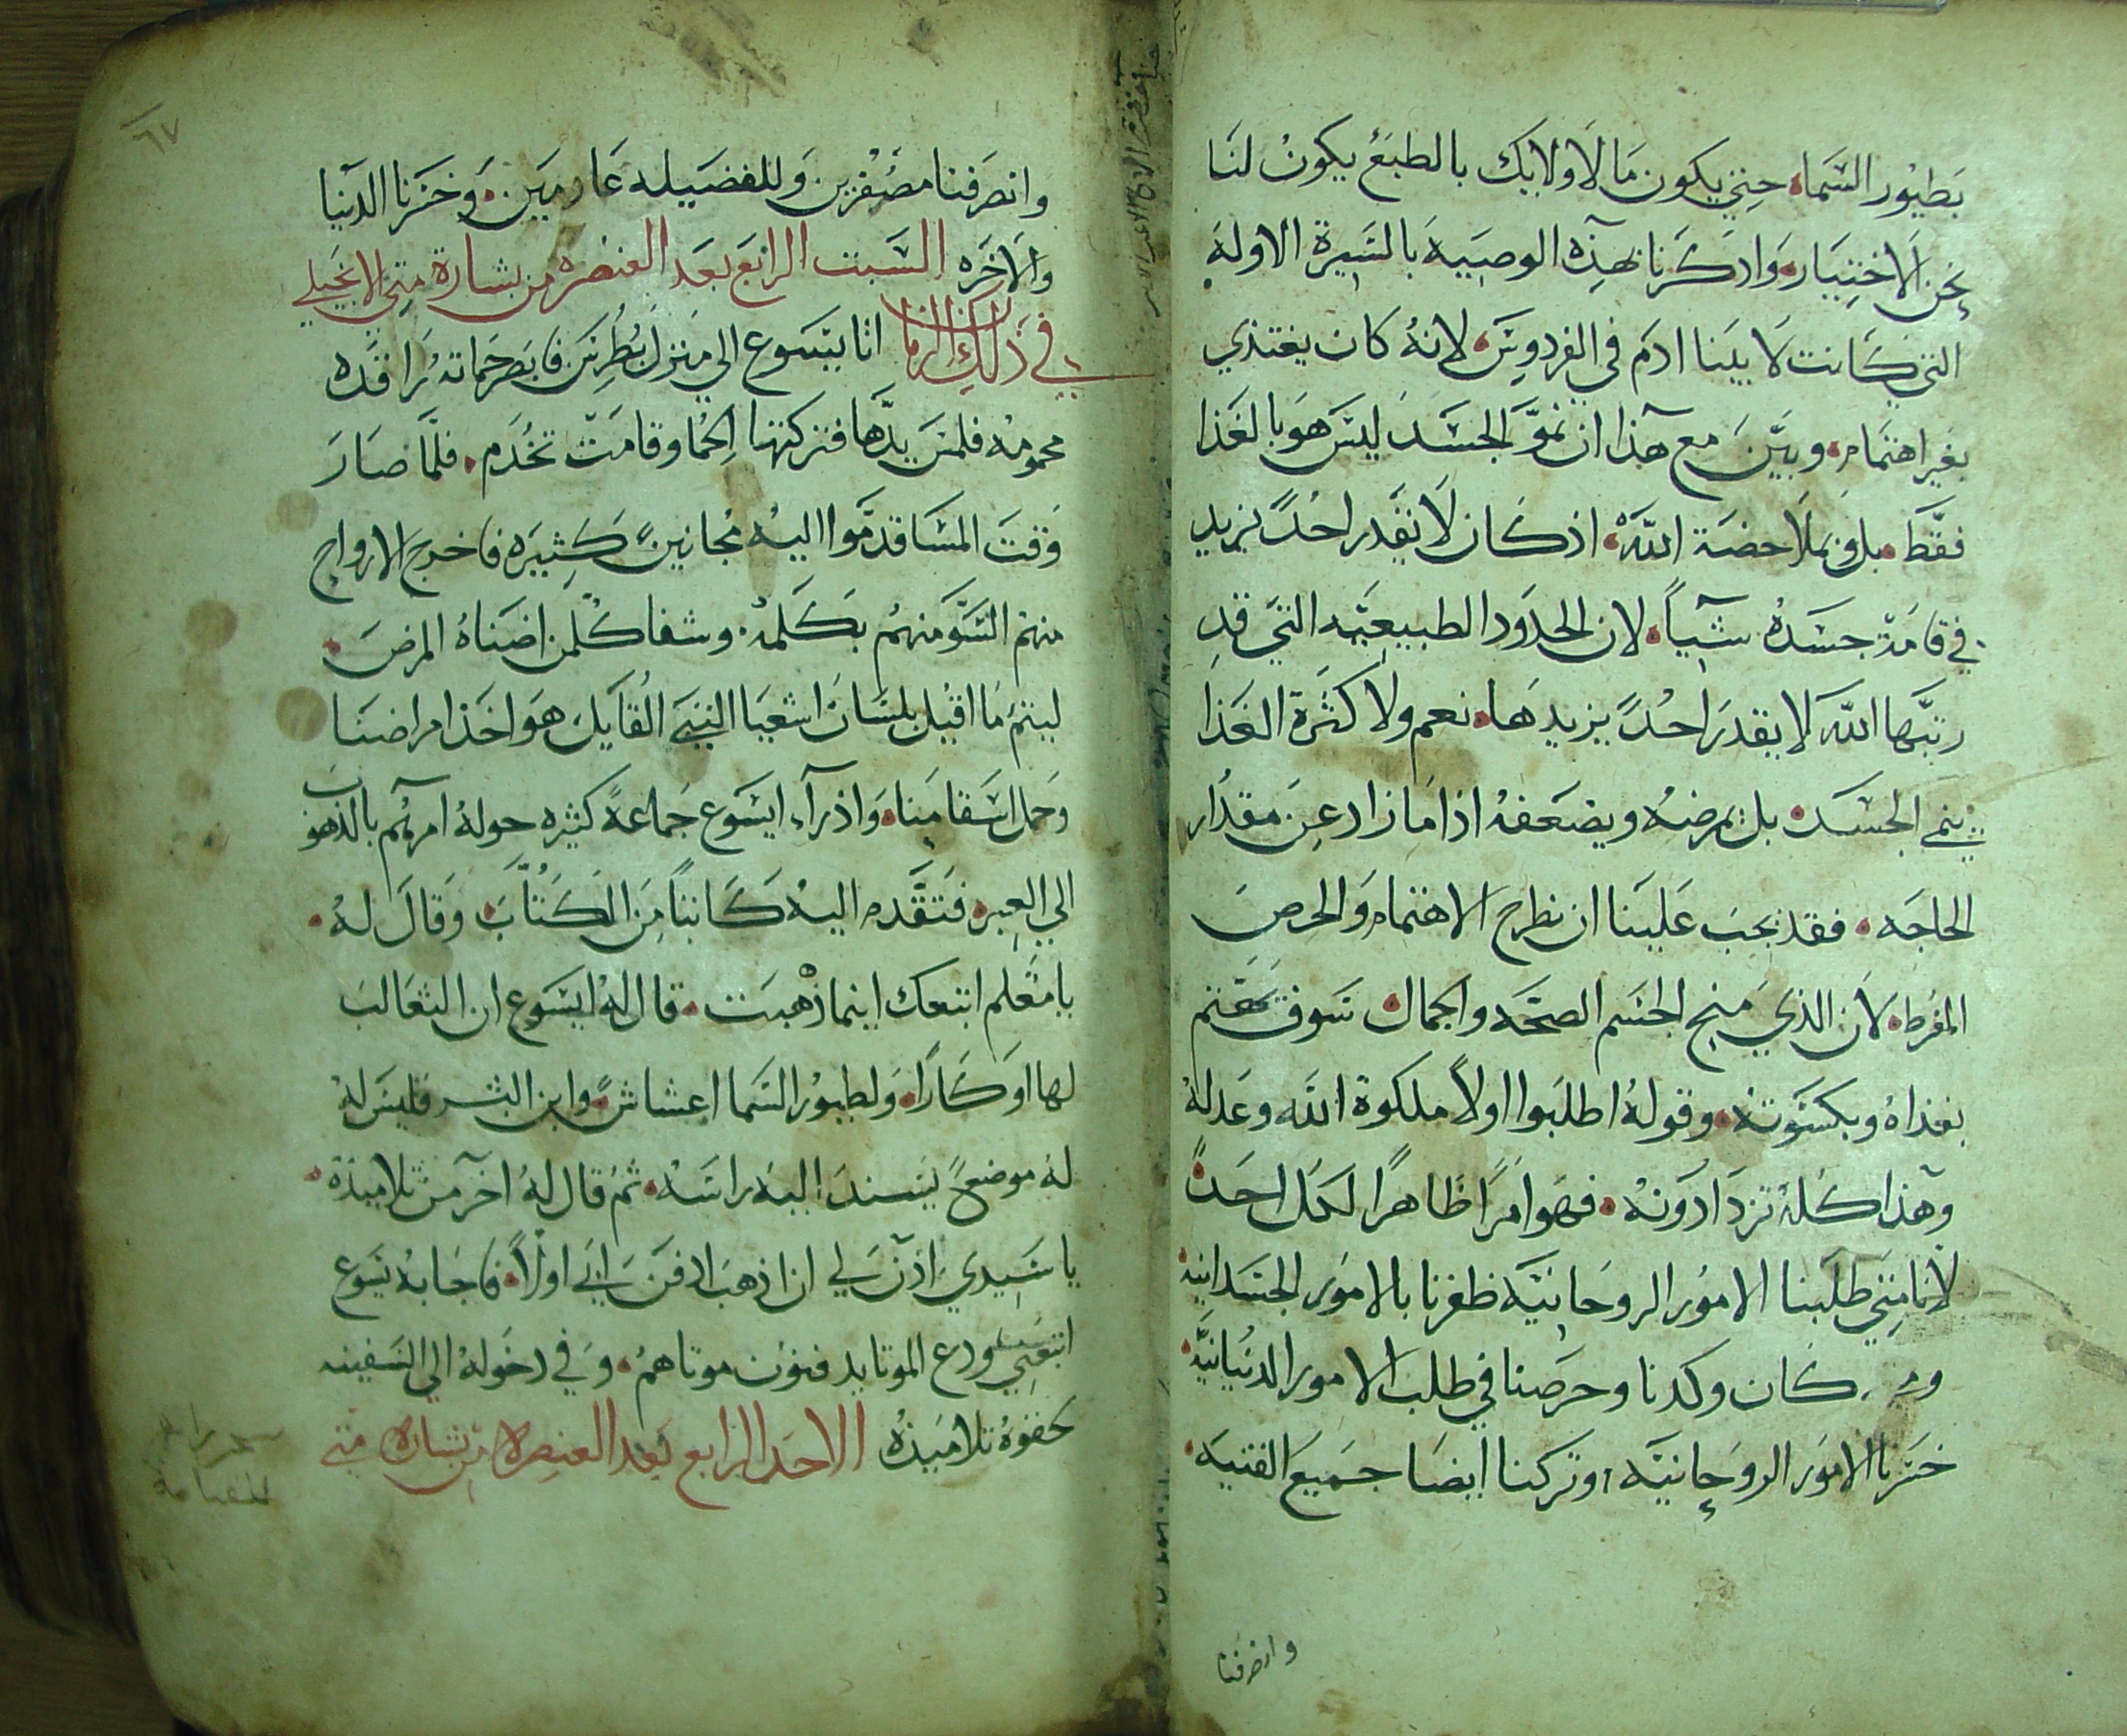 بطيور السماء حتي يكون ما لاولايك بالطبع يكون لنا
نحن الاختيار واذكرنا بهذه الوصيه بالسيرة الاوله
التي كانت لابينا ادم في الفردوس لانه كان يغتدي
بغير اهتمام وبين مع هذا ان نمو الجسد ليس هو بالغذا
فقط بل وبملاحضة الله اذ كان لا نقدر احدً يزيد
في قامة جسده شياً لان الحدود الطبيعيه التي قد
رتبها الله لا يقدر احدً يزيدها نعم ولا كثرة الغذا
ينمي الجسد بل يمرضه ويضعفه اذا ما زاد عن مقدار
الحاجه فقد يجب علينا ان نطرح الاهتمام والحرص
المفرط لان الذي منح الجسم الصحه والجمال سوف يهتم
بغذاه وبكسوته وقوله اطلبوا اولاً ملكوة الله وعدله
وهذا كله تزدادونه فهو امرًا ظاهرًا لكل احد
لاننا متي طلبنا الامور الروحانيه ظفرنا بالامور الجسدانيه
كان وكدنا وحرصنا في طلب الامور الدنيانيه
خسرنا الامور الروحانيه وتركنا ايضا جميع القنيه
وانصرفنا
٦٧
وانصرفنا مصفرين وللفضيله عادمين وخسرنا الدنيا
والاخره السبت الرابع بعد العنصره من بشارة متي الانجيلي
في ذلك الزمان اتا يسوع الي منزل بطرس فابصر حماته راقده
محمومه فلمس يدها فتركتها الحما وقامت تخدم فلما صار
وقت المسا قدموا اليه مجانين كثيره فاخرج الارواح
منهم السو منهم بكلمه وشفا كلمن اضناه المرض
ليتم ما اقيل بلسان اشعيا النبي القايل هو اخذ امراضنا
وحمل اسقامنا واذ راء ايسوع جماعة كثيره حوله امرهم بالذهوب
الي العبر فتقدم اليه كاتبًا من الكتاب وقال له
يا معلم اتبعك اينما ذهبت قال له ايسوع ان الثعالب
لها اوكارًا ولطيور السما اعشاش وابن البشر فليس له
له موضعً يسند اليه راسه ثم قال له آخر من تلاميذه
يا سيدي اذن لي ان اذهب ادفن ابي اولاً فاجابه يسوع
اتبعني ودع الموتا يدفنون موتاهم وفي دخوله الي السفينه
تلاميذه الاحد الرابع بعد العنصره من بشارة متي